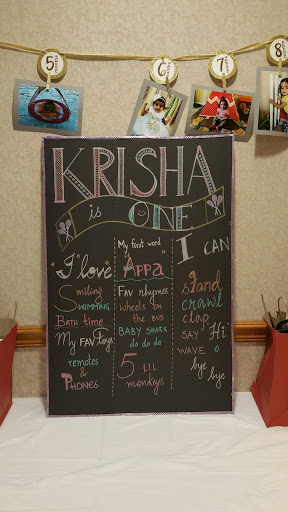 5
6
7
8
KRISHA
is ONE
"I "love"
Smiling
Swimming
Bath time
My Fav Toys
remotes
&
Phones
My first word
"Appa"
Fav rhymes
wheels on
the bus
BABY SHARK
do do do
5 lil'
monkeys
I CAN
stand
crawl
clap
SAY 'Hi'
WAVE
bye
bye